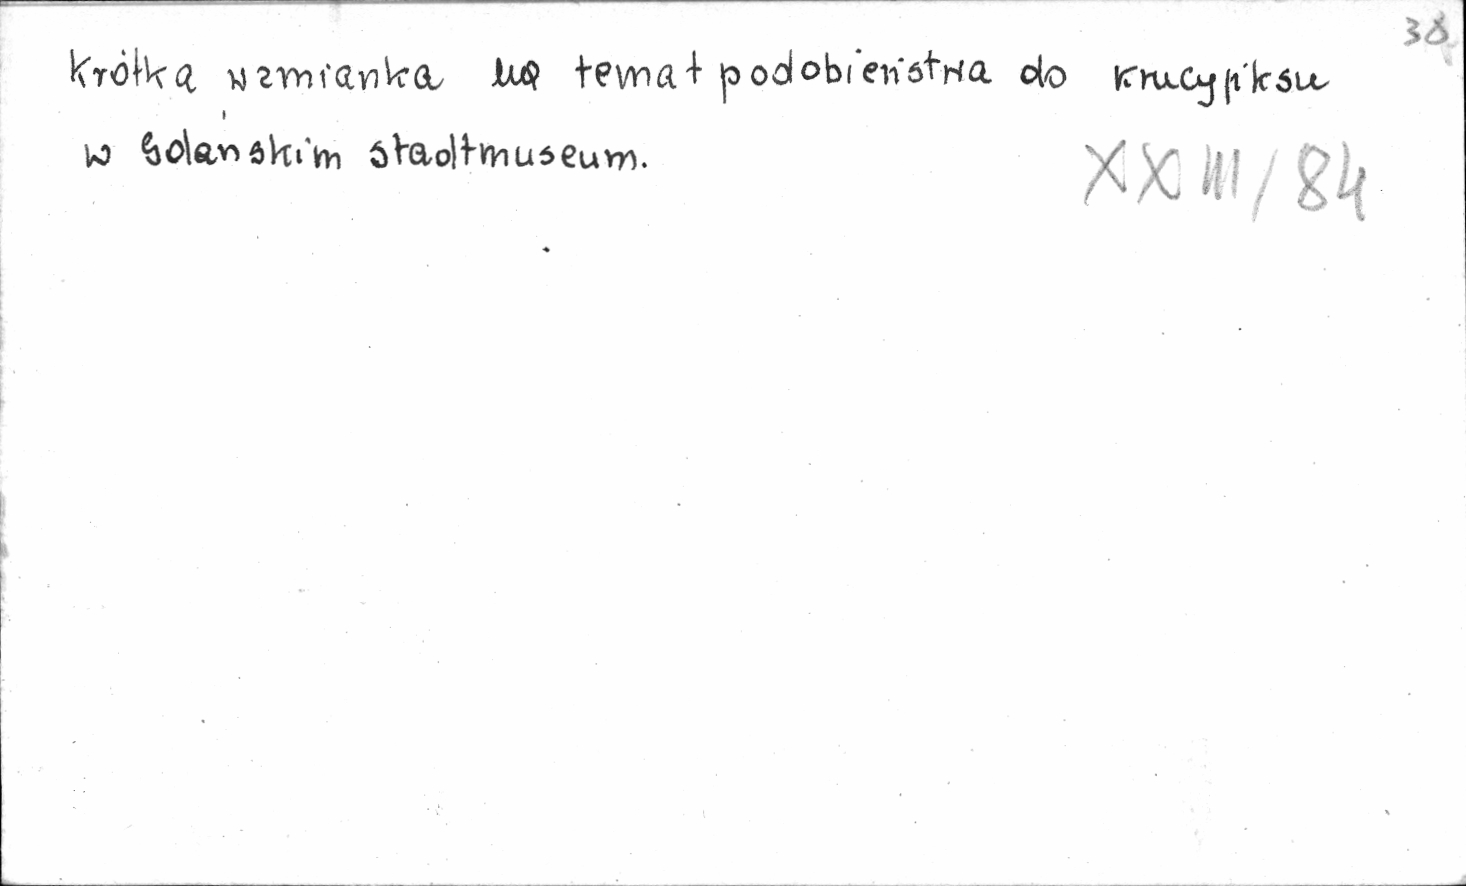 38
Krótka wzmianka na temat podobieństwa do krucyfiksu
w Gdańskim Stadtmuseum.
XXIII/84